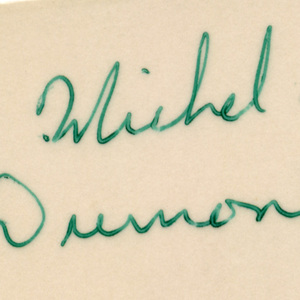 Michel
Dumon